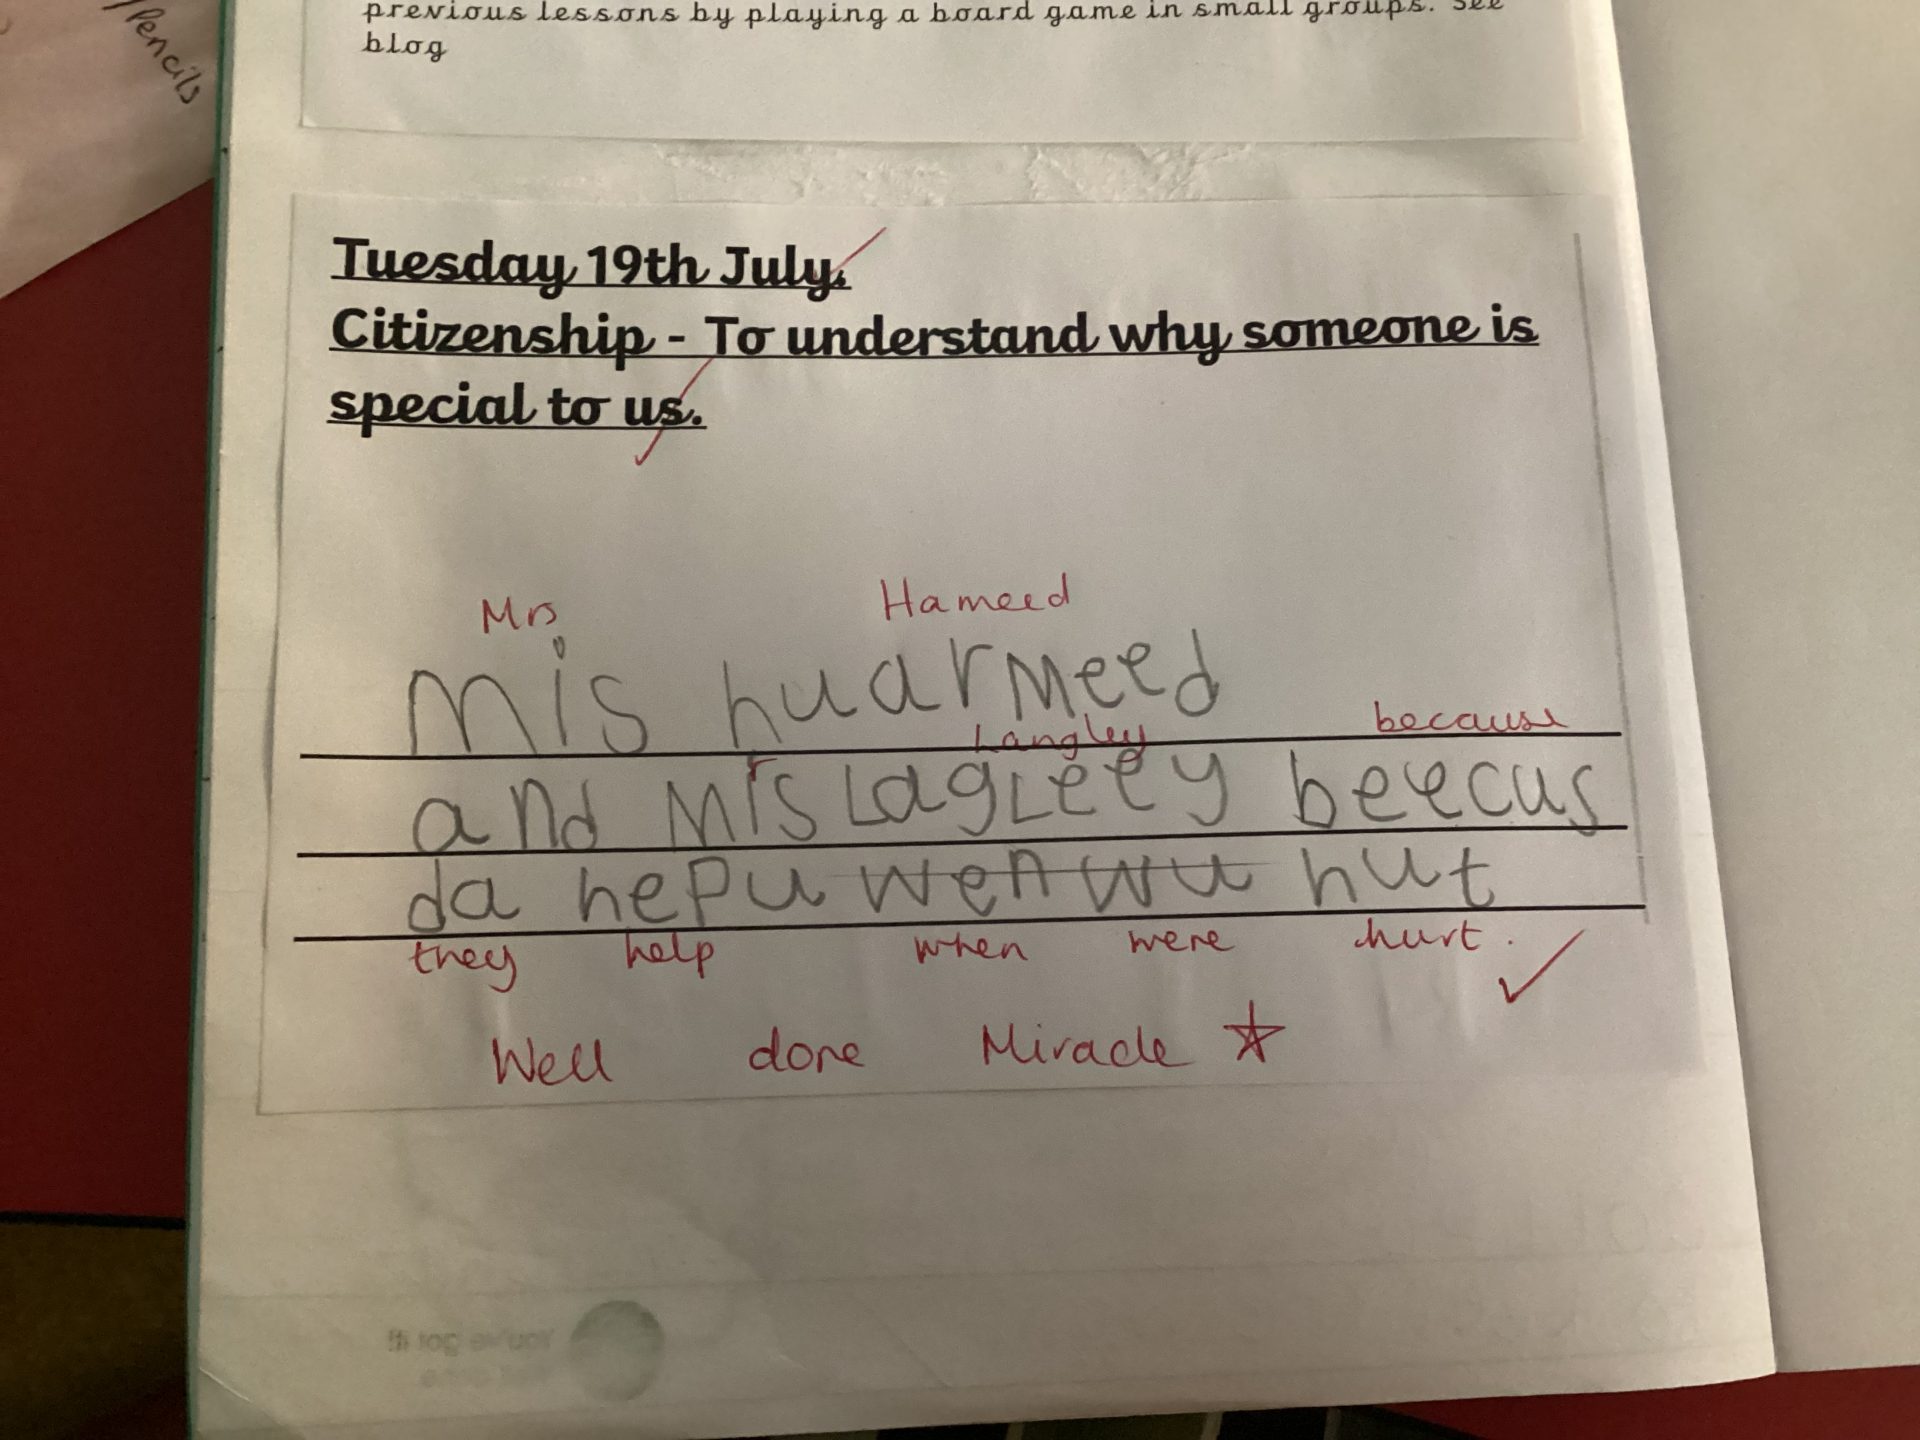 Pencils
previous lessons by playing a board game in small groups. See
blog
Tuesday 19th July.
Citizenship - To understand why someone is
special to us.
Mrs Hameed
Mis huarmeed
Langley because
and Mrs Lagleey beecus
da hepu wen wu hut
they help when were hurt.
Well done Miracle